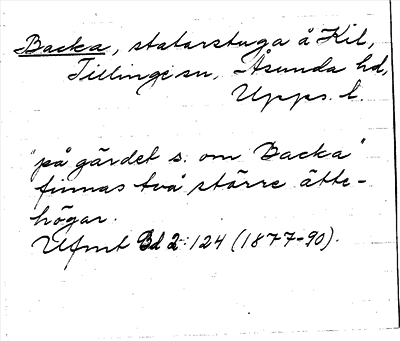 Backa, statarstuga å Kil,
Tillinge sn, Åsunda hd,
Upps. l.
"på gärdet s. om Backa"
finnas två större ätte-
högar.
Ufmt Bd 2:124 (1877-90).